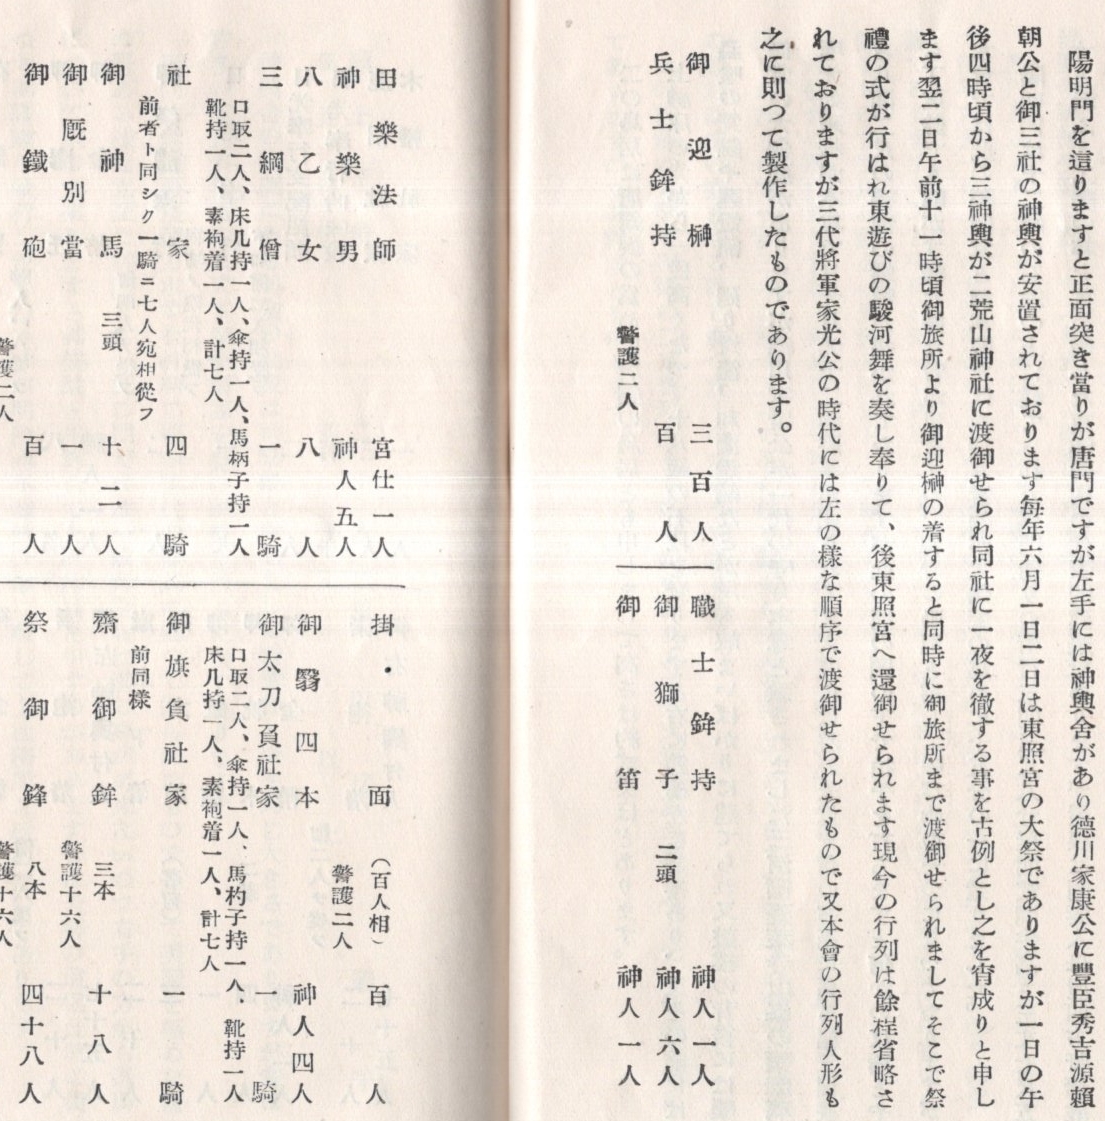 陽明門を這りますと正面突き當りが唐門ですが左手には神輿舍があり德川家康公に豐臣秀吉源賴
朝公と御三社の神輿が安置されております每年六月一日二日は東照宮の大祭でありますが一日の午
後四時頃から三神輿が二荒山神社に渡御せられ同社に一夜を徹する事を古例とし之を宵成りと申し
ます翌二日午前十一時頃御旅所より御迎榊の着すると同時に御旅所まで渡御せられましてそこで祭
禮の式が行はれ東遊びの駿河舞を奏し奉りて、後東照宮へ還御せられます現今の行列は餘程省略さ
れておりますが三代將軍家光公の時代には左の樣な順序で渡御せられたもので又本會の行列人形も
之に則つて製作したものであります。
御迎榊 三百人
兵士鉾持 百人
警護二人
職士鉾持 神人一人
御獅子 二頭 神人六人
御笛 神人一人
田樂法師 宮仕一人
神樂男 神人五人
八乙女 八人
三綱僧 一騎
口取二人、床几持一人、傘持一人、馬柄子持一人
靴持一人、素袍着一人、計七人
社家 四騎
前者ト同シク一騎ニ七人宛相從フ
御神馬 三頭 十二人
御厩別當 一人
御鐵砲 百人
警護二人
掛・面 (百人相) 百人
警護二人
御翳四本 神人四人
御太刀負社家 一騎
口取二人、傘持一人、馬杓子持一人 靴持一人
床几持一人、素袍着一人、計七人
御旗負社家 一騎
前同樣
齋御鉾 三本 十八人
警護十六人
祭御鋒 八本 四十八人
警護十六人